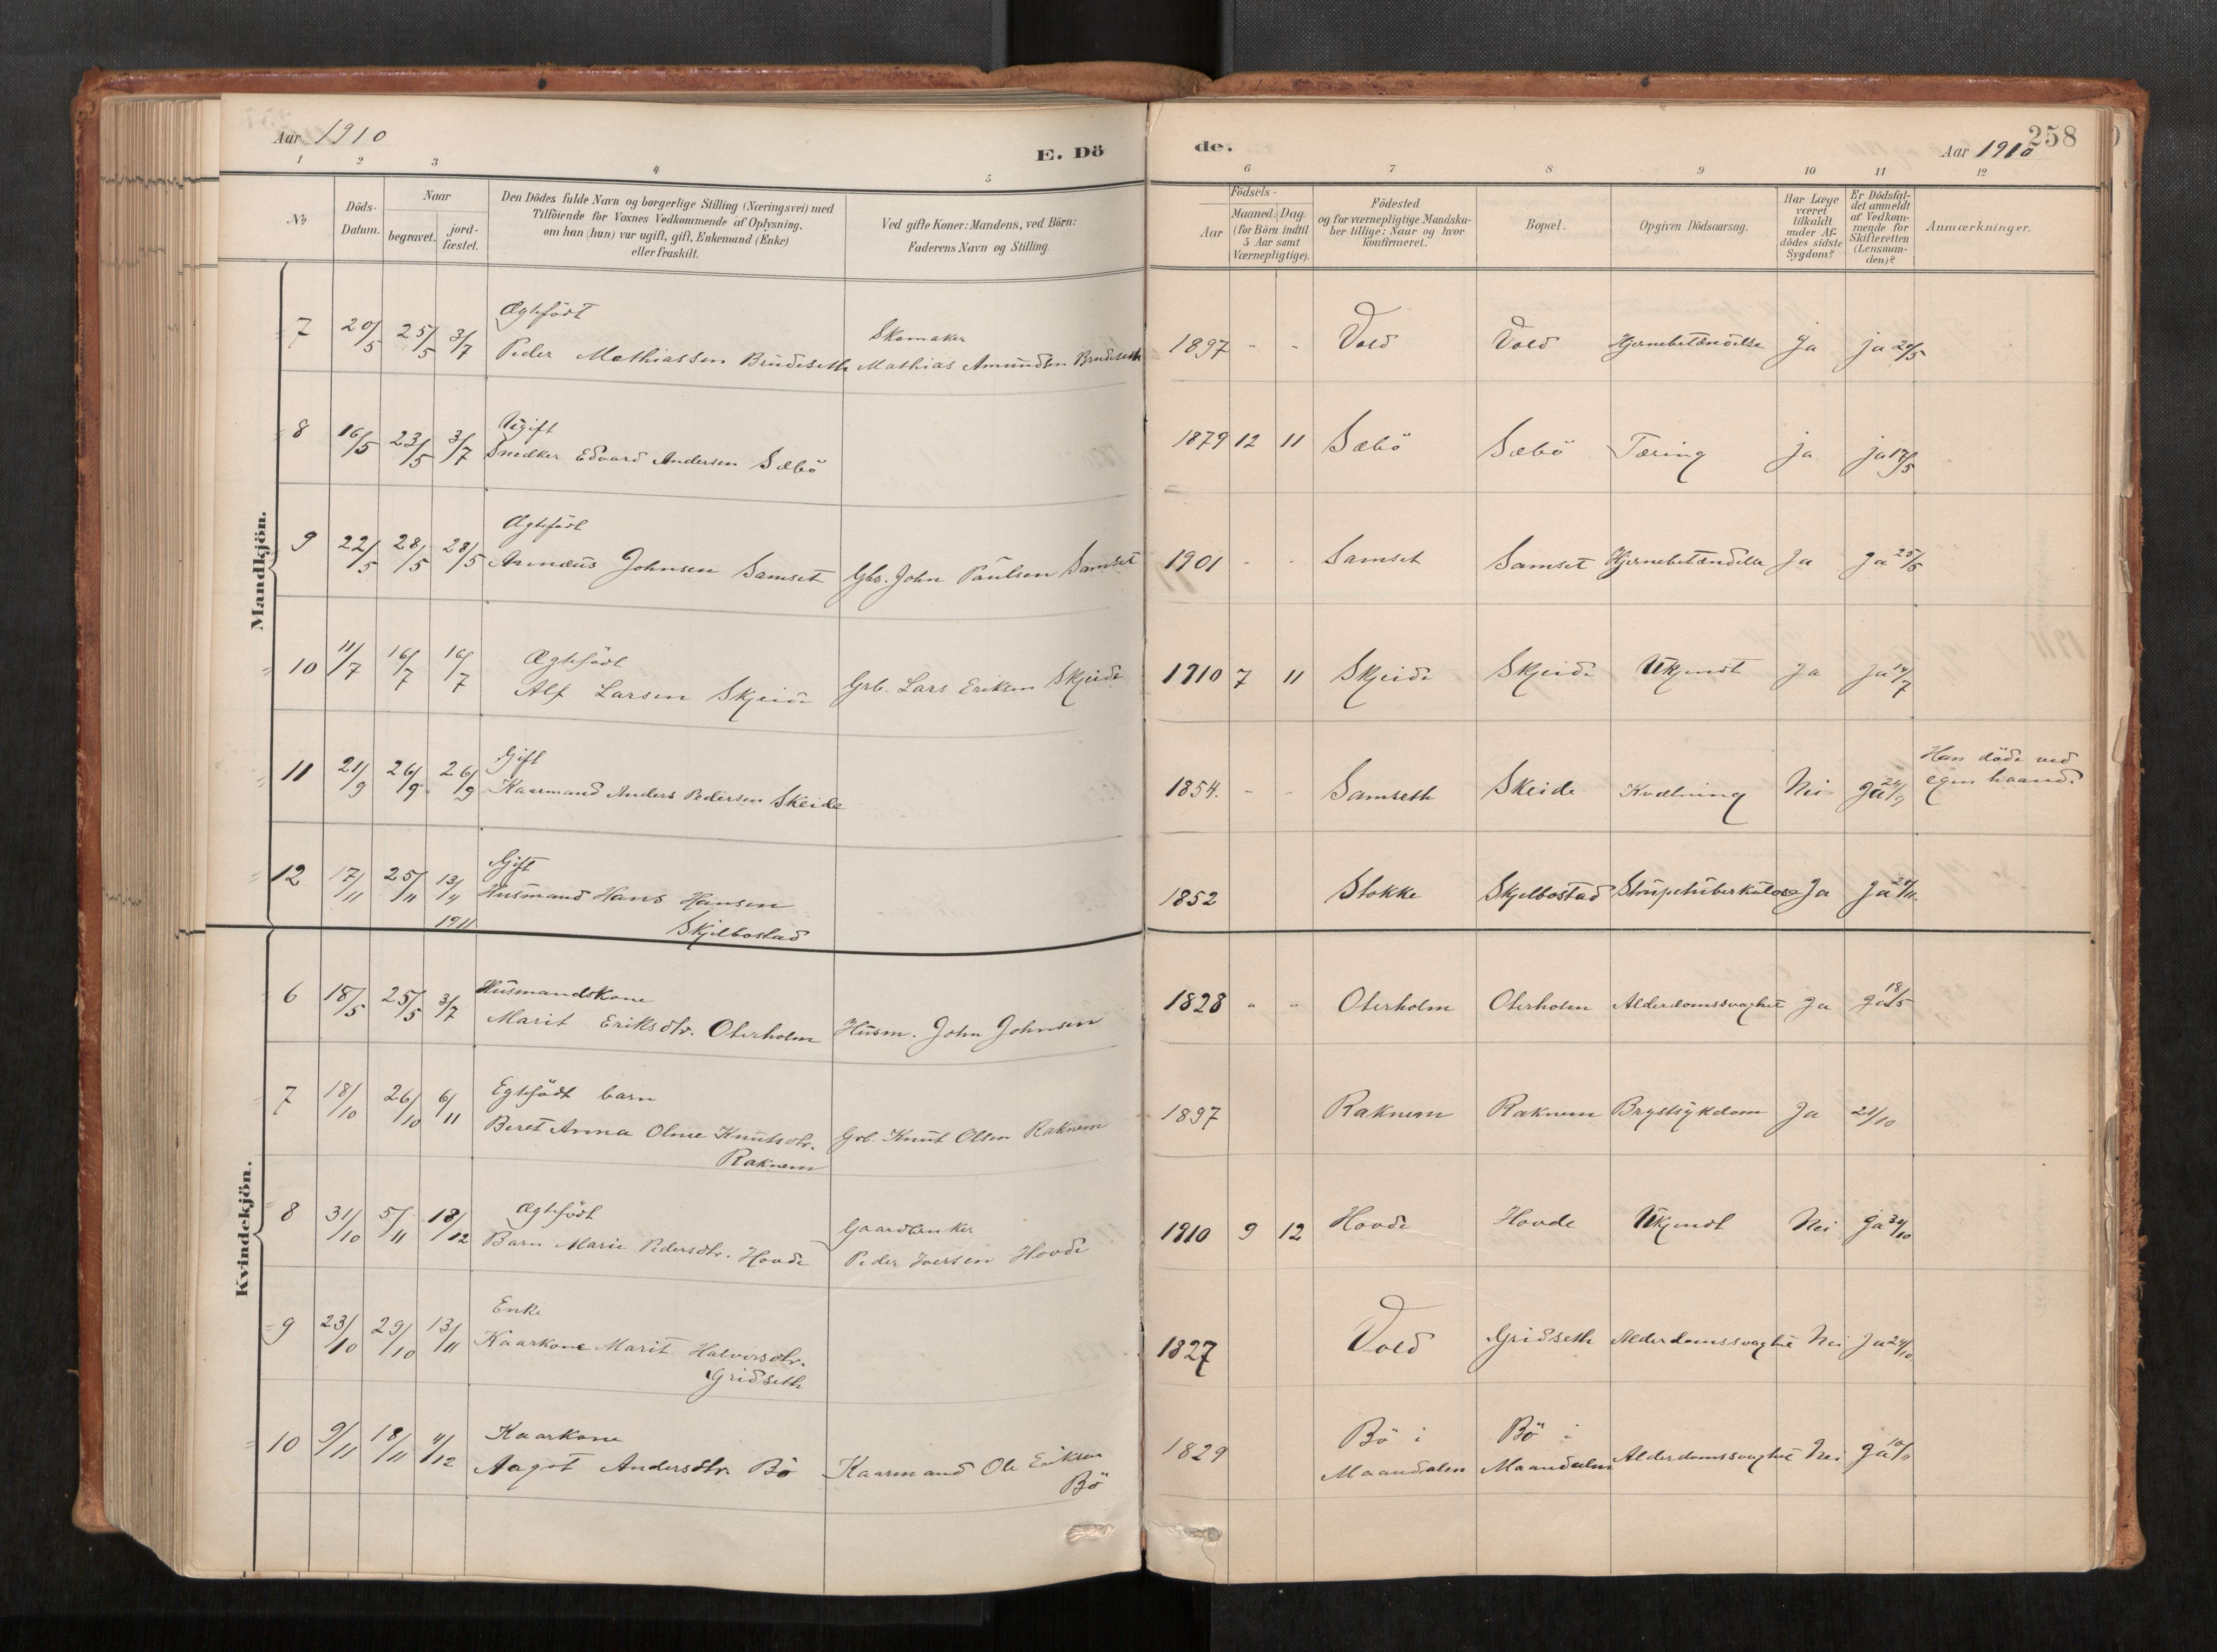 Aar 1910
E. Dö
de.
Aar 1910
258
1 2 3 4 5 6 7 8 9 10 11 12
No
Döds-
Datum.
Naar
begravet.
jord-
fæstet.
Den Dödes fulde Navn og borgerlige Stilling (Næringsvei) med
Tilföiende for Voxnes Vedkommende af Oplysning,
om han (hun) var ugift, gift, Enkemand (Enke)
eller fraskilt.
Ved gifte Koner: Mandens, ved Börn:
Faderens Navn og Stilling.
Födsels-
Aar
Maaned. Dag.
(for Börn indtil
5 Aar samt
Værnepligtige).
Födested
og for værnepligtige Mandska-
ber tillige: Naar og hvor
konfirmeret.
Bopæl.
Opgiven Dödsaarsag.
Har Læge
været
tilkaldt
under Af-
dödes sidste
Sygdom?
Er Dödsfal-
det anmeldt
af Vedkom-
mende for
Skifteretten
(Lensman-
den)?
Anmærkninger.
Mandkjön.
Ægtefödt Skomaker
7 20/5 25/5 3/7 Peder Mathiassen Brudeseth Mathias Amundsen Brudeseth 1897 - - Vold Vold Hjernebetændelse Ja ja 20/5
Ugift
8 16/5 23/5 3/7 Snedker Edvard Andersen Sæbö 1879 12 11 Sæbö Sæbö Tæring ja ja 17/5
Ægtefödt
9 22/5 28/5 28/5 Arnæus Johnsen Samset Gbr. John Paulsen Samset 1901 - - Samset Samset Hjernebetændelse Ja Ja 25/5
Ægtefödt
10 11/7 16/7 16/7 Alf Larsen Skjeide Grb. Lars Eriksen Skjeide 1910 7 11 Skjeide Skjeide Ukjendt Ja Ja 14/7
Gift
11 21/9 26/9 26/9 Kaarmand Anders Pedersen Skeide 1854. - - Samseth Skeide Kvælning Nei Ja 24/9 Han döde ved
egen haand.
Gift
12 17/11 25/11 13/4 Husmand Hans Hansen 1852 Stokke Skjelbostad Strupetuberkulose Ja Ja 20/11.
1911 Skjelbostad
Kvindekjön.
Husmandskone
6 18/5 25/5 3/7 Marit Eriksdtr. Oterholm Husm. John Johnsen 1828 - - Oterholm Oterholm Alderdomssvaghet Ja Ja 18/5
Egtefödt barn
7 18/10 26/10 6/11 Beret Anna Oline Knutsdtr. Grb. Knut Olsen Raknem 1897 Raknem Raknem Brystsykdom Ja 21/10
Raknem
Ægtefödt Gaardbruker
8 31/10 5/11 18/12 Barn Marie Pedersdtr. Hovde Peder Iversen Hovde 1910 9 12 Hovde Hovde Ukjendt Nei Ja 31/10
Enke
9 23/10 29/10 13/11 Kaarkone Marit Halvorsdtr. 1827 Vold Gridseth Alderdomssvaghet Nei Ja 24/10
Gridseth
Kaarkone
10 9/11 18/11 4/12 Aagot Andersdtr. Bö Kaarmand Ole Eriksen 1829 Bö i Bö i
Bö Maandalen Maandalen Alderdomssvaghet Nei Ja 10/11